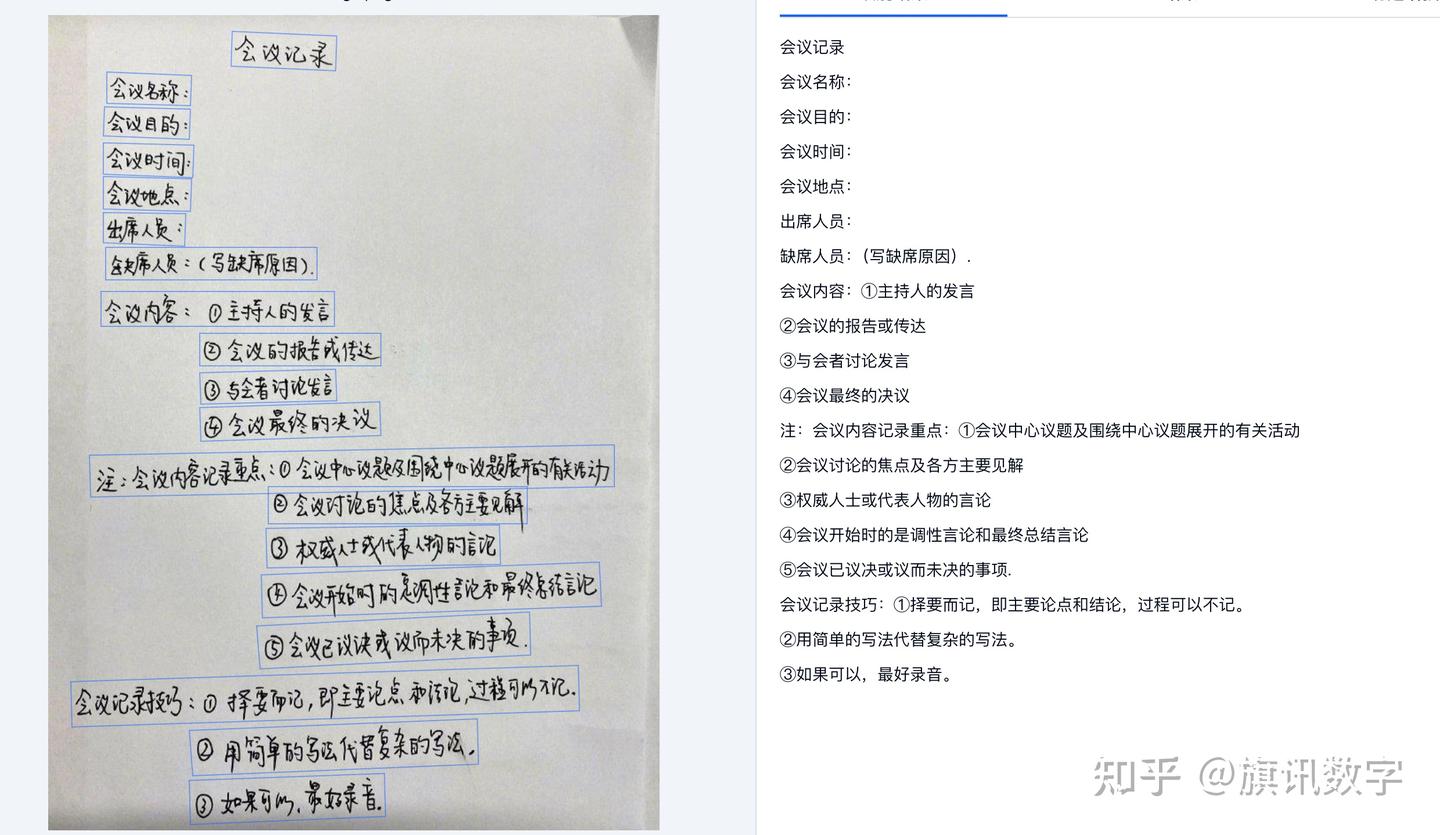 会议记录
会议名称：
会议目的：
会议时间：
会议地点：
出席人员：
缺席人员：（写缺席原因）.
会议内容：①主持人的发言
②会议的报告或传达
③与会者讨论发言
④会议最终的决议
注：会议内容记录重点：①会议中心议题及围绕中心议题展开的有关活动
②会议讨论的焦点及各方主要见解
③权威人士或代表人物的言论
④会议开始时的定调性言论和最终总结言论
⑤会议已议决或议而未决的事项.
会议记录技巧：①择要而记，即主要论点和结论，过程可以不记.
②用简单的写法代替复杂的写法.
③如果可以、最好录音.
会议记录
会议名称：
会议目的：
会议时间：
会议地点：
出席人员：
缺席人员：（写缺席原因）.
会议内容：①主持人的发言
②会议的报告或传达
③与会者讨论发言
④会议最终的决议
注：会议内容记录重点：①会议中心议题及围绕中心议题展开的有关活动
②会议讨论的焦点及各方主要见解
③权威人士或代表人物的言论
④会议开始时的是调性言论和最终总结言论
⑤会议已议决或议而未决的事项.
会议记录技巧：①择要而记，即主要论点和结论，过程可以不记。
②用简单的写法代替复杂的写法。
③如果可以，最好录音。
知乎 @旗讯数字